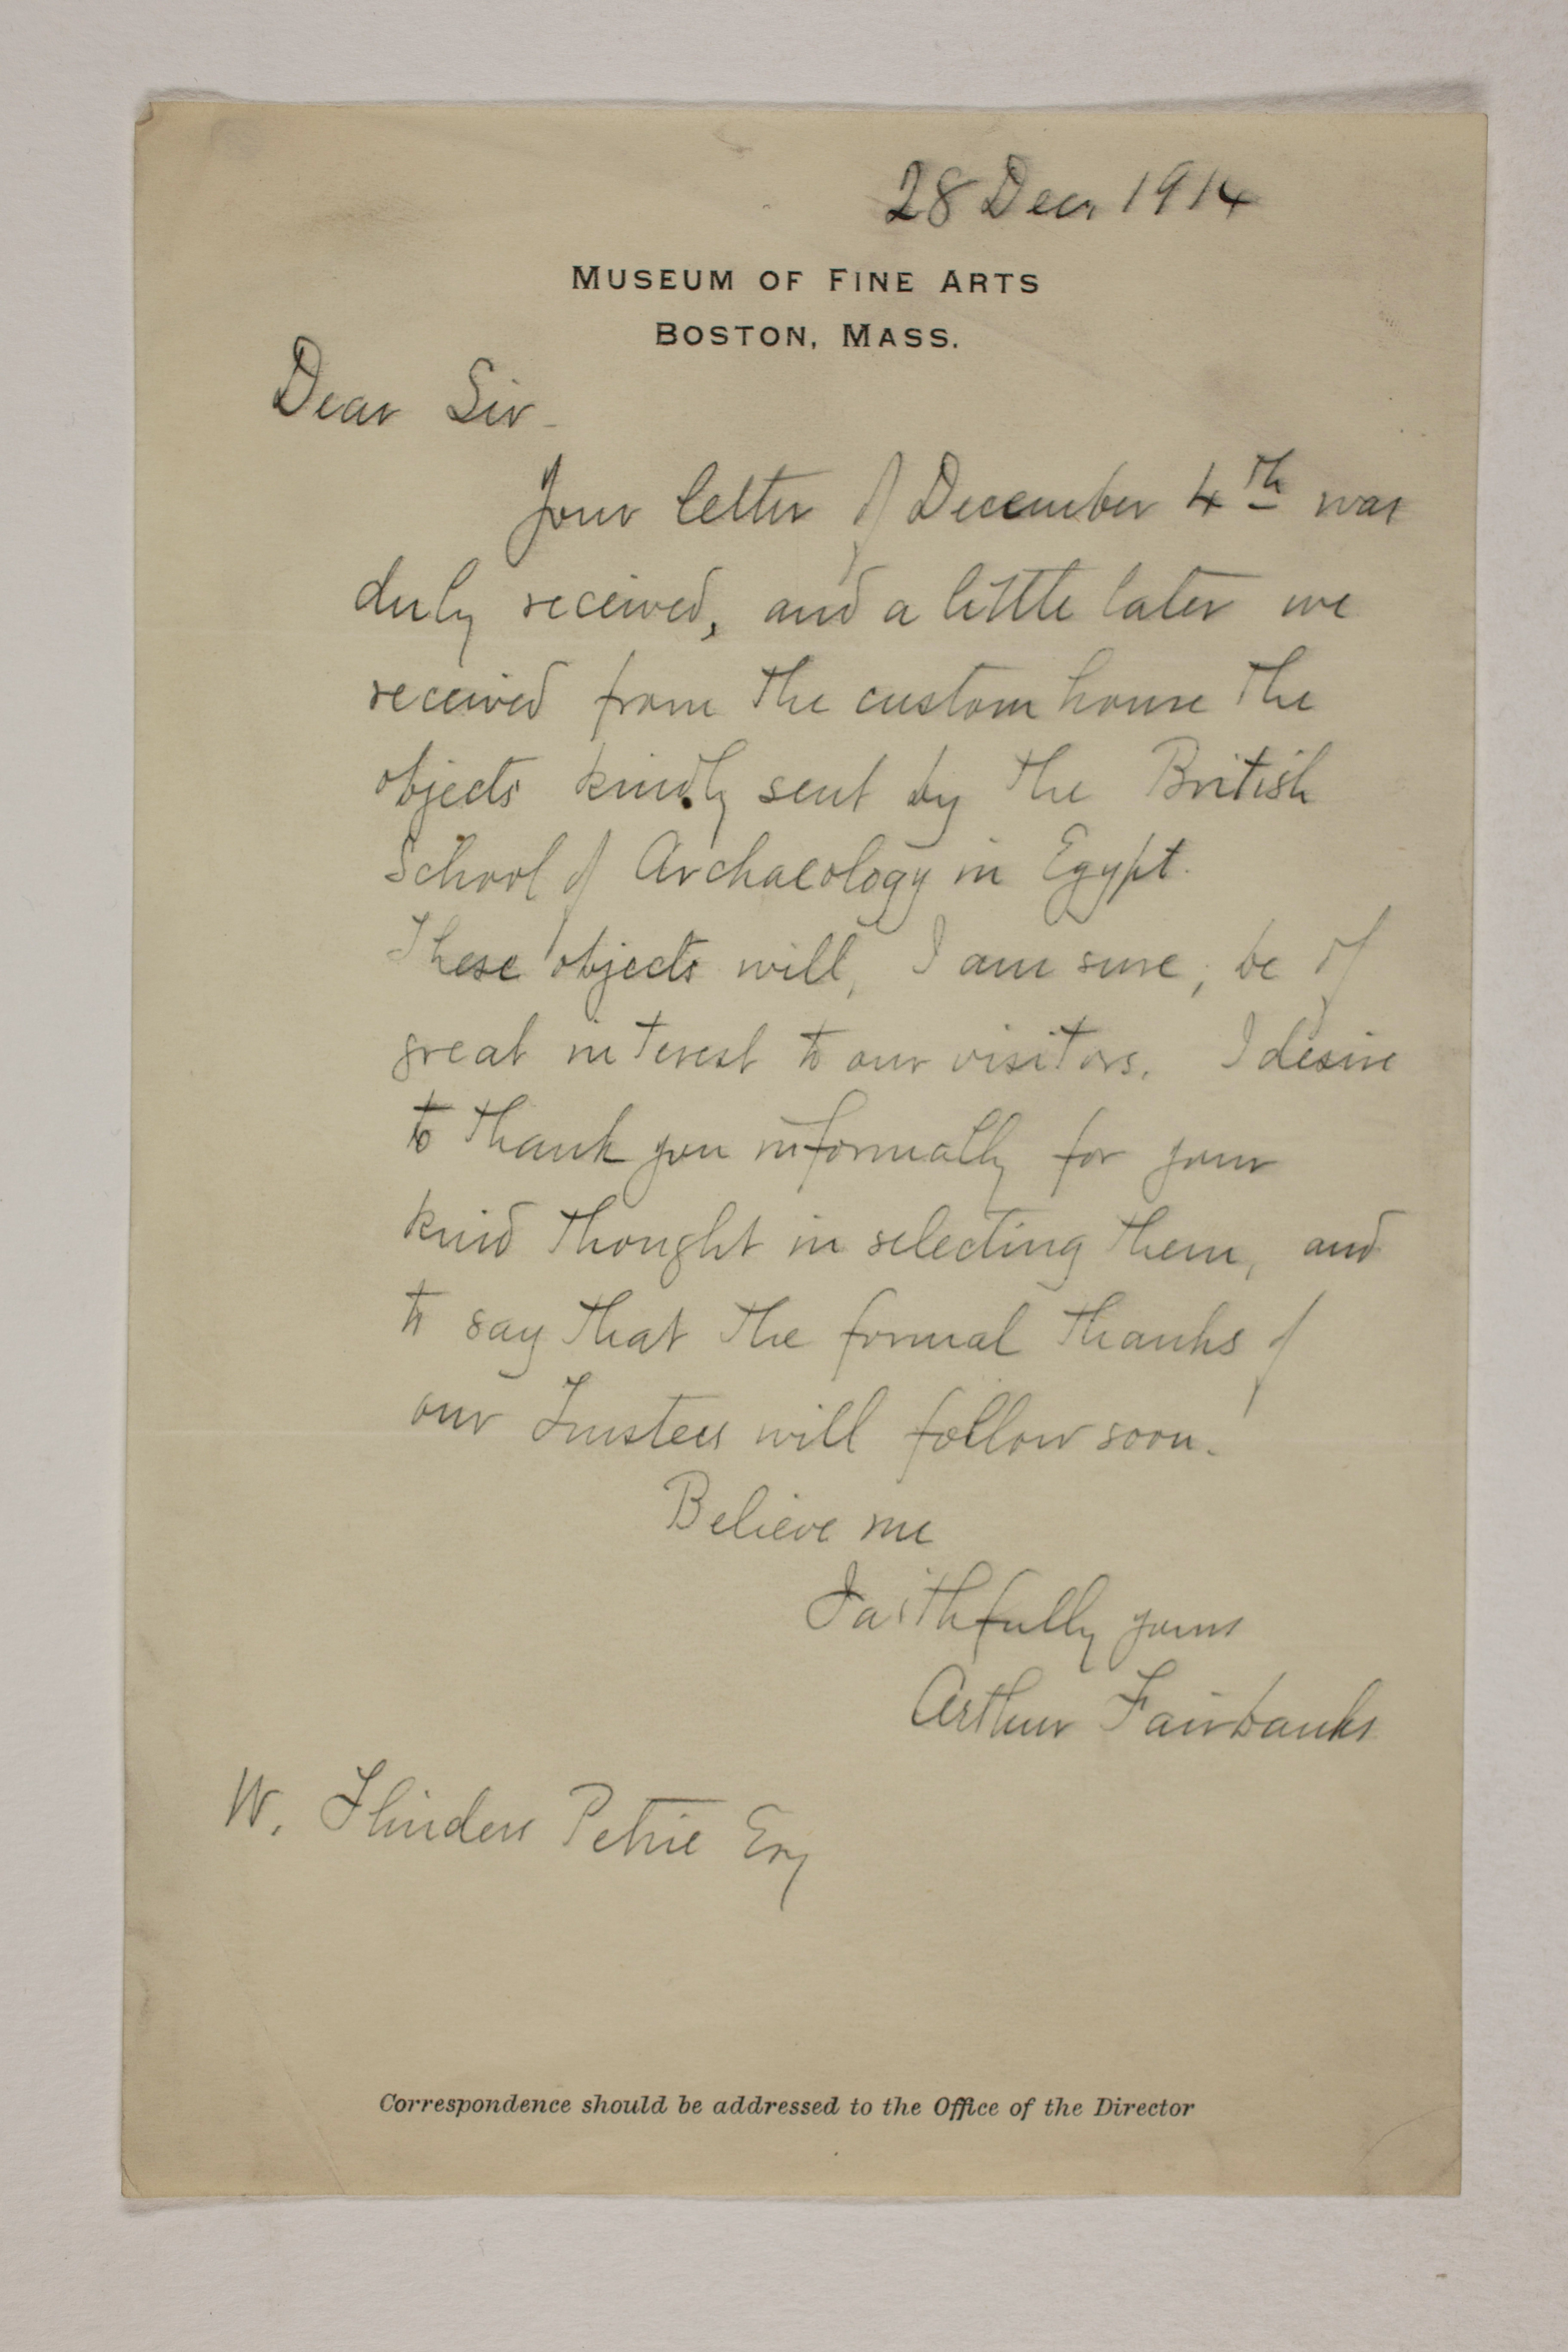 28 Decr 1914
MUSEUM OF FINE ARTS
BOSTON, MASS.
Dear Sir -
Your letter of December 4th was
duly received, and a little later we
received from the custom house the
objects kindly sent by the British
School of Archaeology in Egypt.
These objects will, I am sure, be of
great interest to our visitors. I desire
to thank you informally for your
kind thought in selecting them, and
to say that the formal thanks of
our Trustees will follow soon.
Believe me
Faithfully yours
Arthur Fairbanks
W. Flinders Petrie Esq
Correspondence should be addressed to the Office of the Director